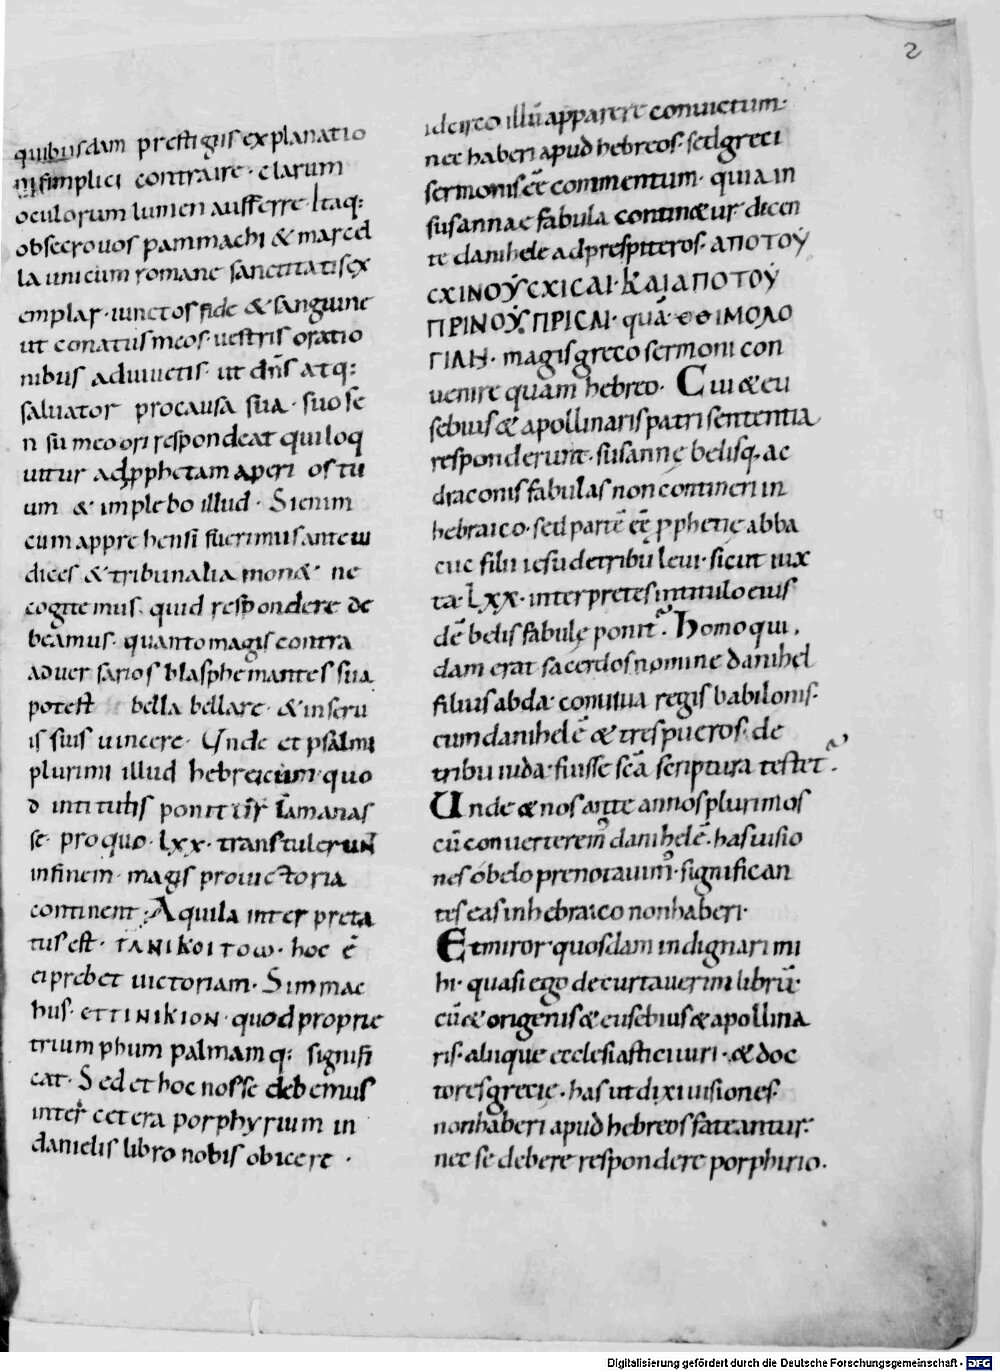 2
quibusdam prestigiis explanatio
ni simplici contraire · clarum
oculorum lumen aufferre · Itaq:
obsecrovos pammachi & marcel
la unicum romane sanctitatis ex
emplar · iunctos fide & sanguine
ut conatus meos · uestris oratio
nibus adiuuetis · ut dn̄s atq:
saluator procausa sua · suo se
n su meo ori respondeat qui loq
uitur ad p̱phetam aperi os tu
um & implebo illud · Si enim
cum appre hensi fuerimus ante iu
dices & tribunalia mon& · ne
cogite mus · quid respondere de
beamus · quanto magis contra
aduer sarios blasphemantes sua
potest bella bellare · & in serui
is suis uincere · Unde et psalmi
plurimi illud hebreicum · quo
d intitulis ponitur lamanas
se · pro quo · lxx · transtulerunt
infinem · magis prouictoria
continent · Aquila inter preta
tus est · ΤΑΝΙΚΟΙΤΟω · hoc ē
ei prebet uictoriam · Simmac
hus · εΤΤΙΝΙΚΙΟΝ · quod proprie
trium phum palmam q: signifi
cat · Sed et hoc nosse debemus
inter cetera porphyrium in
danielis libro nobis obicere ·
idcirco illū apparere conuictum ·
nec haberi apud hebreos · sed greci
sermonis ēē commentum · quia in
susannae fabula contin&ur · dicen
te danihele ad prespiteros · ΑΠΟΤΟΥ
CΧΙΝΟΥ CΧΙCΑΙ · ΚΑΙ ΑΠΟΤΟΥ
ΠΡΙΝΟΥ ΠΡΙCΑΙ · quā εΘΙΜΟΛΟ
ΓΙΑΝ · magis greco sermoni con
uenire quam hebreo · Cui & eu
sebius & apollinaris pari sententia
responderunt · susannę belisq. ac
draconis fabulas non contineri in
hebraico · sed partē ēē p̱phetię abba
cuc filii iesu de tribu leui · sicut iux
ta · Lxx · interpretes in titulo eius
dē belis fabulę ponit̃ · Homo qui ·
dam erat sacerdos nomine danihel
filius abda · conuiua regis babilonis ·
cum danihelē & tres pueros · de
tribu iuda · fuisse scā scriptura testet̃ ·
Unde & nos ante annos plurimos
cū conuerterem᾽ danihelē · has uisio
nes obelo prenotauim᾽ · significan
tes eas in hebraico non haberi ·
Et miror quosdam indignari mi
hi · quasi ego decurtauerim librū ·
cū & origenis & eusebius & apollina
ris · aliique ecclesiastici uiri · & doc
tores grecię · has ut dixi uisiones
non haberi apud hebreos fateantur ·
nec se debere respondere porphirio ·
Digitalisierung gefördert durch die Deutsche Forschungsgemeinschaft - DFG